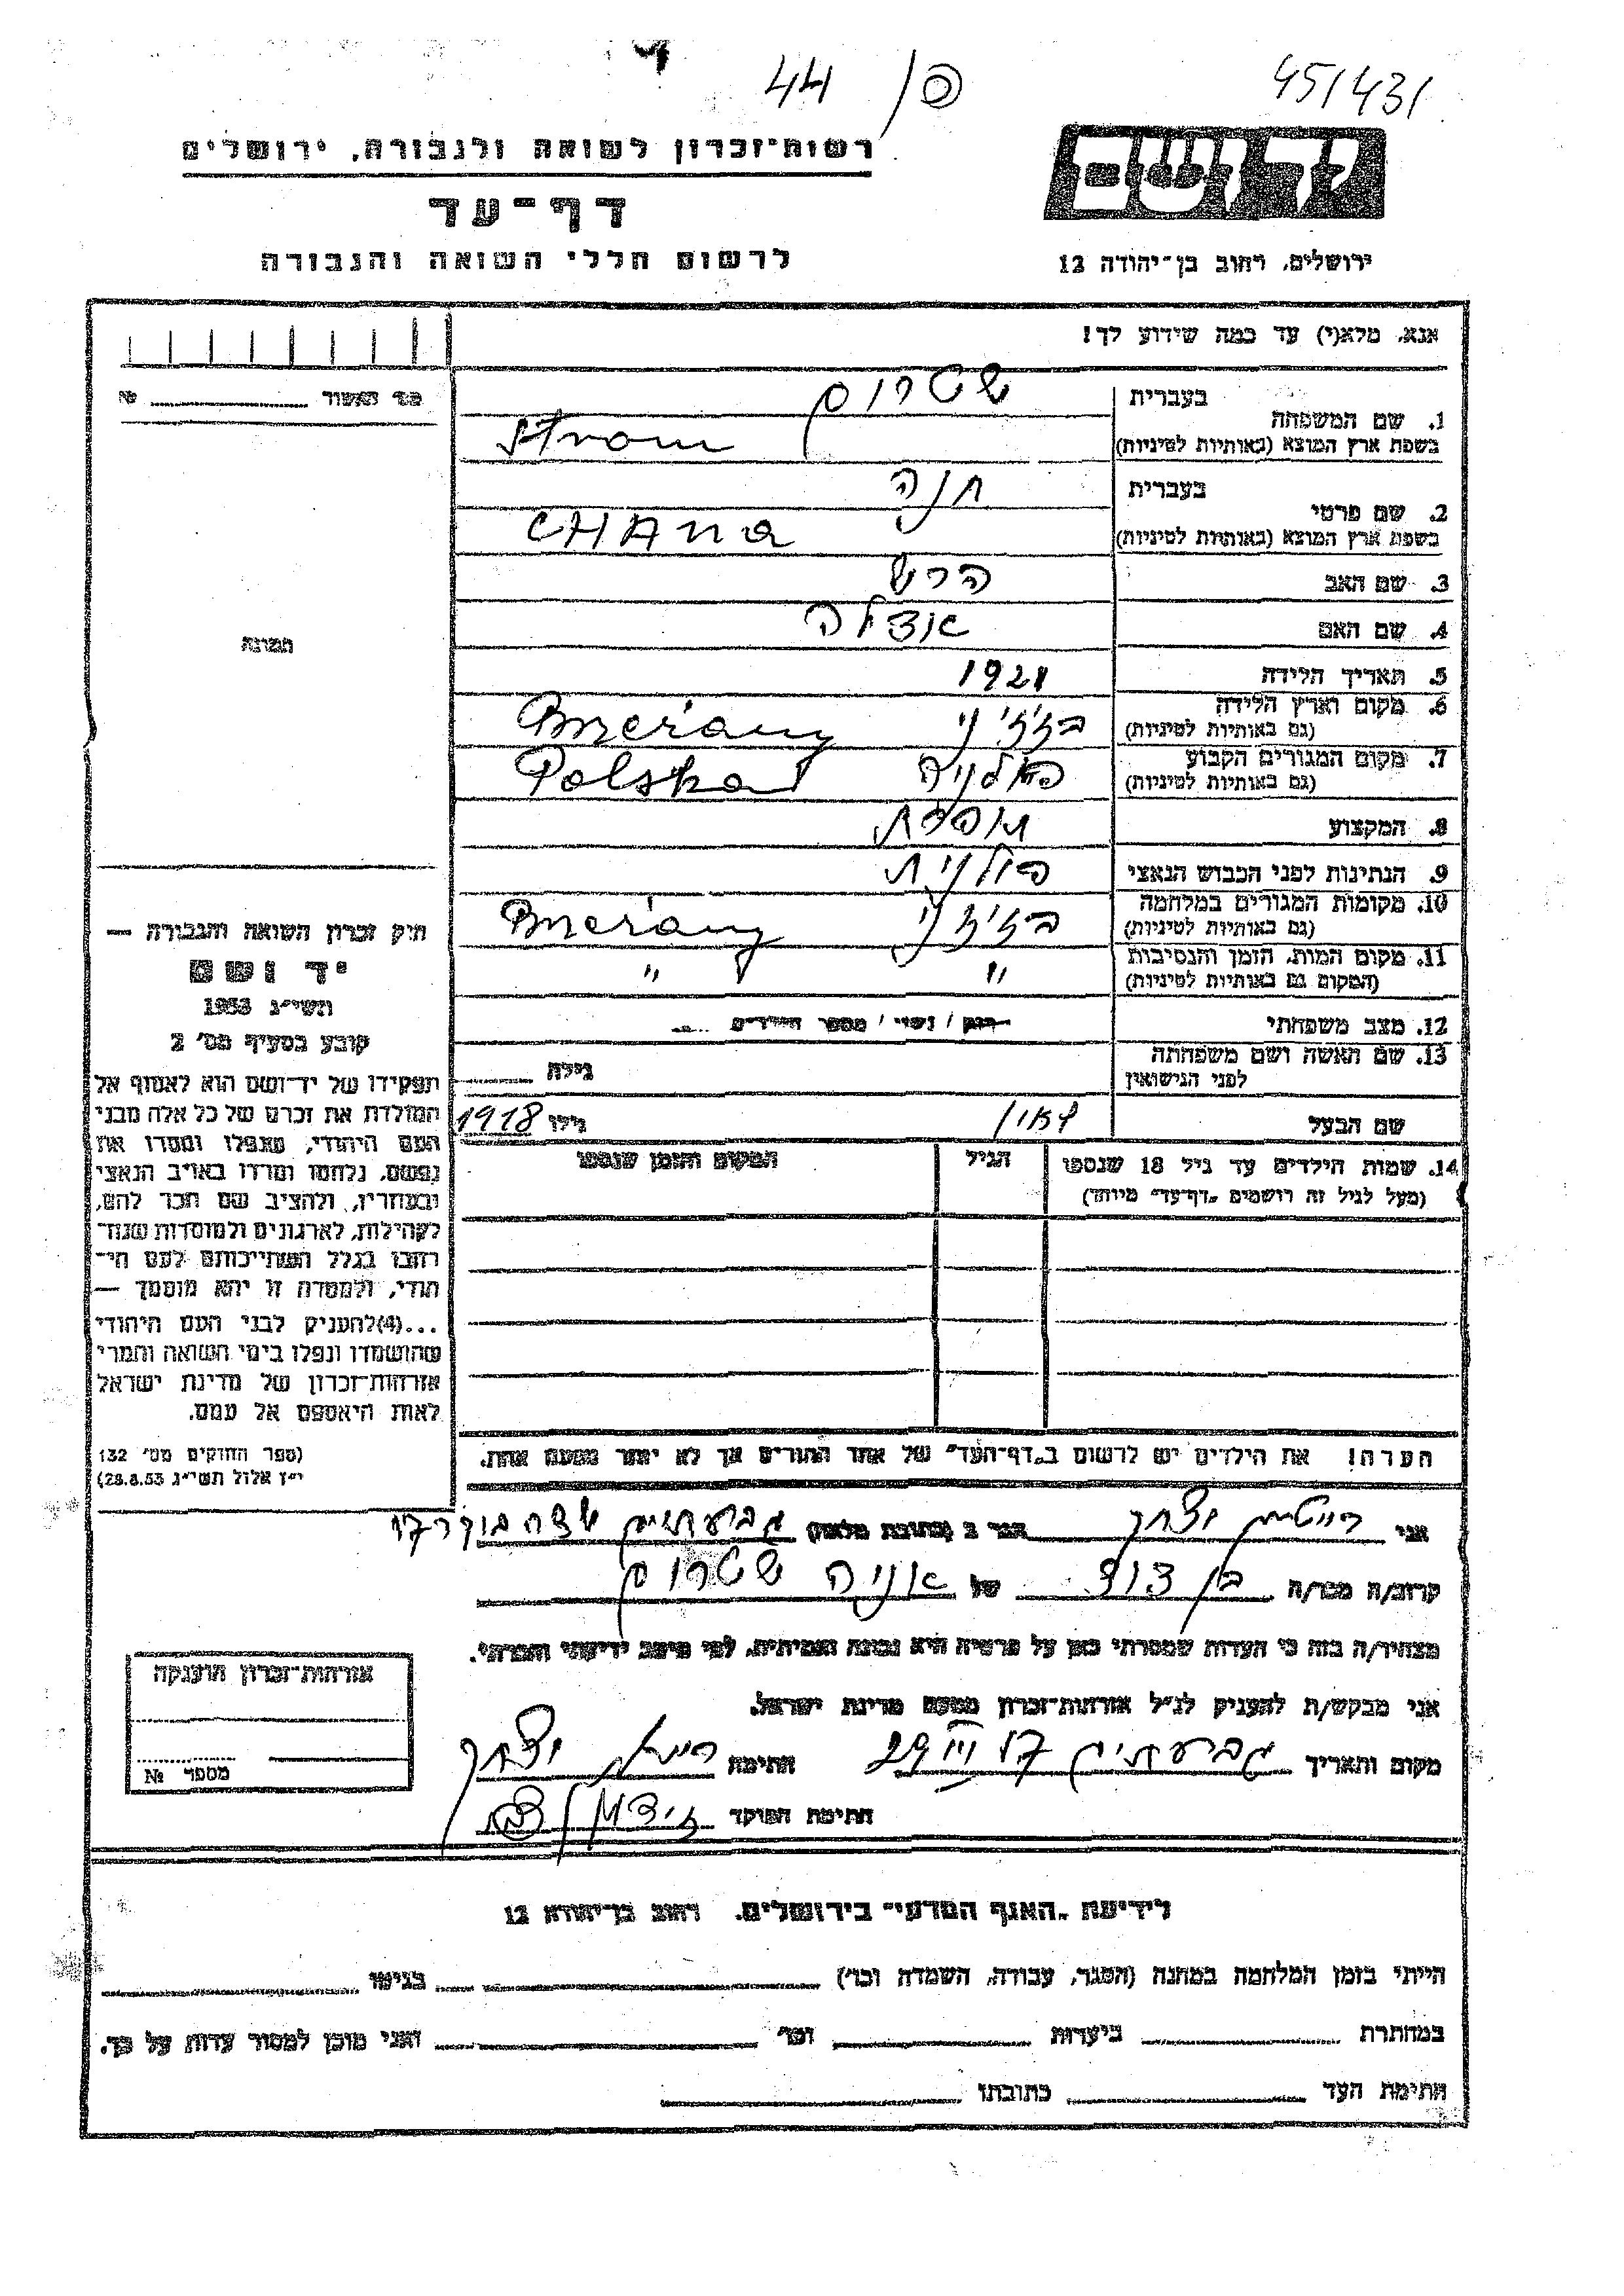 44 / פ
45/431
רשות־זכרון לשואה ולגבורה, ירושלים
דף־עד
לרשום חללי השואה והגבורה
יד ושם
ירושלים, רחוב בן־יהודה 12
אנא, מלא(י) עד כמה שידוע לך!
מס׳ האשור №
1. שם המשפחה
בעברית שטרום
בשפת ארץ המוצא (באותיות לטיניות) Strom
2. שם פרטי
בעברית חנה
בשפת ארץ המוצא (באותיות לטיניות) CHAna
3. שם האב הרש
4. שם האם
תמונה
5. תאריך הלידה 1921
6. מקום וארץ הלידה
(גם באותיות לטיניות) בז׳ז׳ני Bnerany
7. מקום המגורים הקבוע
(גם באותיות לטיניות) פולניה Polska
8. המקצוע תופרת
9. הנתינות לפני הכבוש הנאצי פולנית
10. מקומות המגורים במלחמה
(גם באותיות לטיניות) בז׳ז׳ני Bnerany
11. מקום המות, הזמן והנסיבות
(המקום גם באותיות לטיניות) " "
12. מצב משפחתי רווק / נשוי / מספר הילדים
13. שם האשה ושם משפחתה
לפני הנישואין גילה
שם הבעל גילו 1918
14. שמות הילדים עד גיל 18 שנספו הגיל המקום והזמן שנספו
(מעל לגיל זה רושמים „דף־עד" מיוחד)
חוק זכרון השואה והגבורה —
יד ושם
תשי״ג 1953
קובע בסעיף מס׳ 2
תפקידו של יד־ושם הוא לאסוף אל
המולדת את זכרם של כל אלה מבני
העם היהודי, שנפלו ומסרו את
נפשם, נלחמו ומרדו באויב הנאצי
ובעוזריו, ולהציב שם וזכר להם,
לקהילות, לארגונים ולמוסדות שנח־
רבו בגלל השתייכותם לעם הי־
הודי, ולמטרה זו יהא מוסמך —
...(4)להעניק לבני העם היהודי
שהושמדו ונפלו בימי השואה והמרי
אזרחות־זכרון של מדינת ישראל
לאות היאספם אל עמם.
(ספר החוקים מס׳ 132
י״ז אלול תשי״ג 28.8.53)
הערה! את הילדים יש לרשום ב„דף־העד" של אחד ההורים אך לא יותר מפעם אחת.
אני רויטמן יצחק הגר ב (כתובת מלאה) גבעתיים
קרוב/ה מכר/ה בן דוד של אניה שטרום
מצהיר/ה בזה כי העדות שמסרתי כאן על פרטיה היא נכונה ואמיתית, לפי מיטב ידיעתי והכרתי.
אני מבקש/ת להעניק לנ״ל אזרחות־זכרון מטעם מדינת ישראל.
מקום ותאריך גבעתיים 29 III חתימה יצחק
חתימת הפוקד
אזרחות־זכרון הוענקה
מספר №
לידיעת „האגף המדעי" בירושלים, רחוב בן־יהודה 12
הייתי בזמן המלחמה במחנה (הסגר, עבודה, השמדה וכו׳) בגיטו
במחתרת ביערות וכו׳ ואני מוכן למסור עדות על כך.
חתימת העד כתובתו